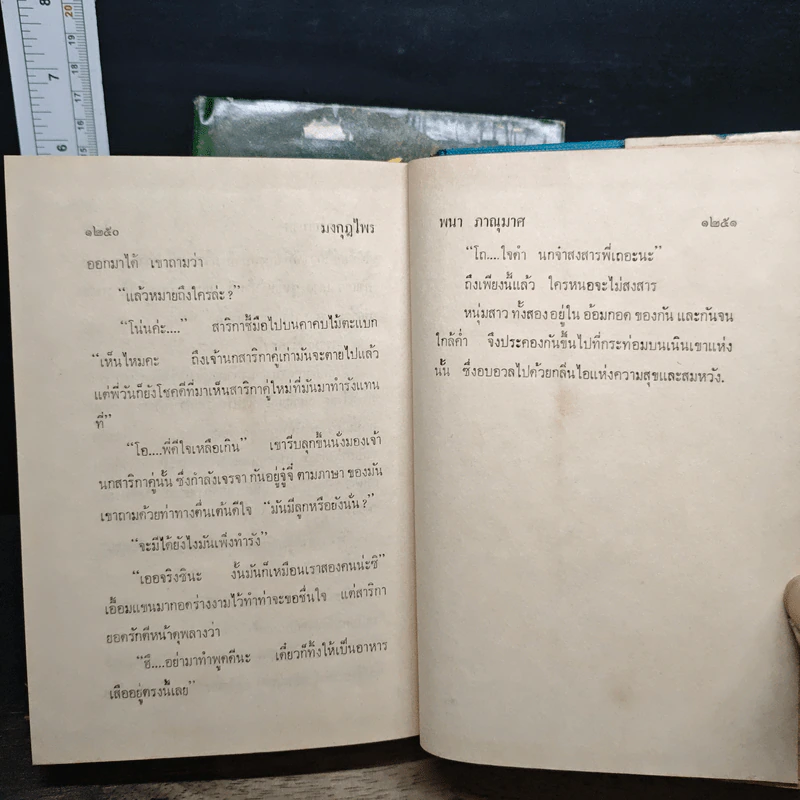 8
7
6
20
19
18
17
16
๑๒๕๐ มงกุฎไพร
ออกมาได้ เขาถามว่า
“แล้วหมายถึงใครล่ะ?”
“โน่นค่ะ....” สาริกาชี้มือไปบนคาคบไม้ตะแบก
“เห็นไหมคะ ถึงเจ้านกสาริกาคู่เก่ามันจะตายไปแล้ว
แต่พี่วันก็ยังโชคดีที่มาเห็นสาริกาคู่ใหม่ที่มันมาทำรังแทน
ที่”
“โอ....พี่ดีใจเหลือเกิน” เขารีบลุกขึ้นนั่งมองเจ้า
นกสาริกาคู่นั้น ซึ่งกำลังเจรจา กันอยู่จู๋จี๋ ตามภาษา ของมัน
เขาถามด้วยท่าทางตื่นเต้นดีใจ “มันมีลูกหรือยังนั่น?”
“จะมีได้ยังไงมันเพิ่งทำรัง”
“เออจริงซินะ งั้นมันก็เหมือนเราสองคนน่ะซิ”
เอื้อมแขนมากอดร่างงามไว้ทำท่าจะขอชื่นใจ แต่สาริกา
ยอดรักตีหน้าดุพลางว่า
“ฮึ....อย่ามาทำพูดดีนะ เดี๋ยวก็ทิ้งให้เป็นอาหาร
เสืออยู่ตรงนี้เลย”
พนา ภาณุมาศ ๑๒๕๑
“โถ....ใจดำ นกจ๋าสงสารพี่เถอะนะ”
ถึงเพียงนี้แล้ว ใครหนอจะไม่สงสาร
หนุ่มสาว ทั้งสอง อยู่ใน อ้อมกอด ของกัน และกันจน
ใกล้ค่ำ จึงประคองกันขึ้นไปที่กระท่อมบนเนินเขาแห่ง
นั้น ซึ่งอบอวลไปด้วยกลิ่นไอแห่งความสุขและสมหวัง.